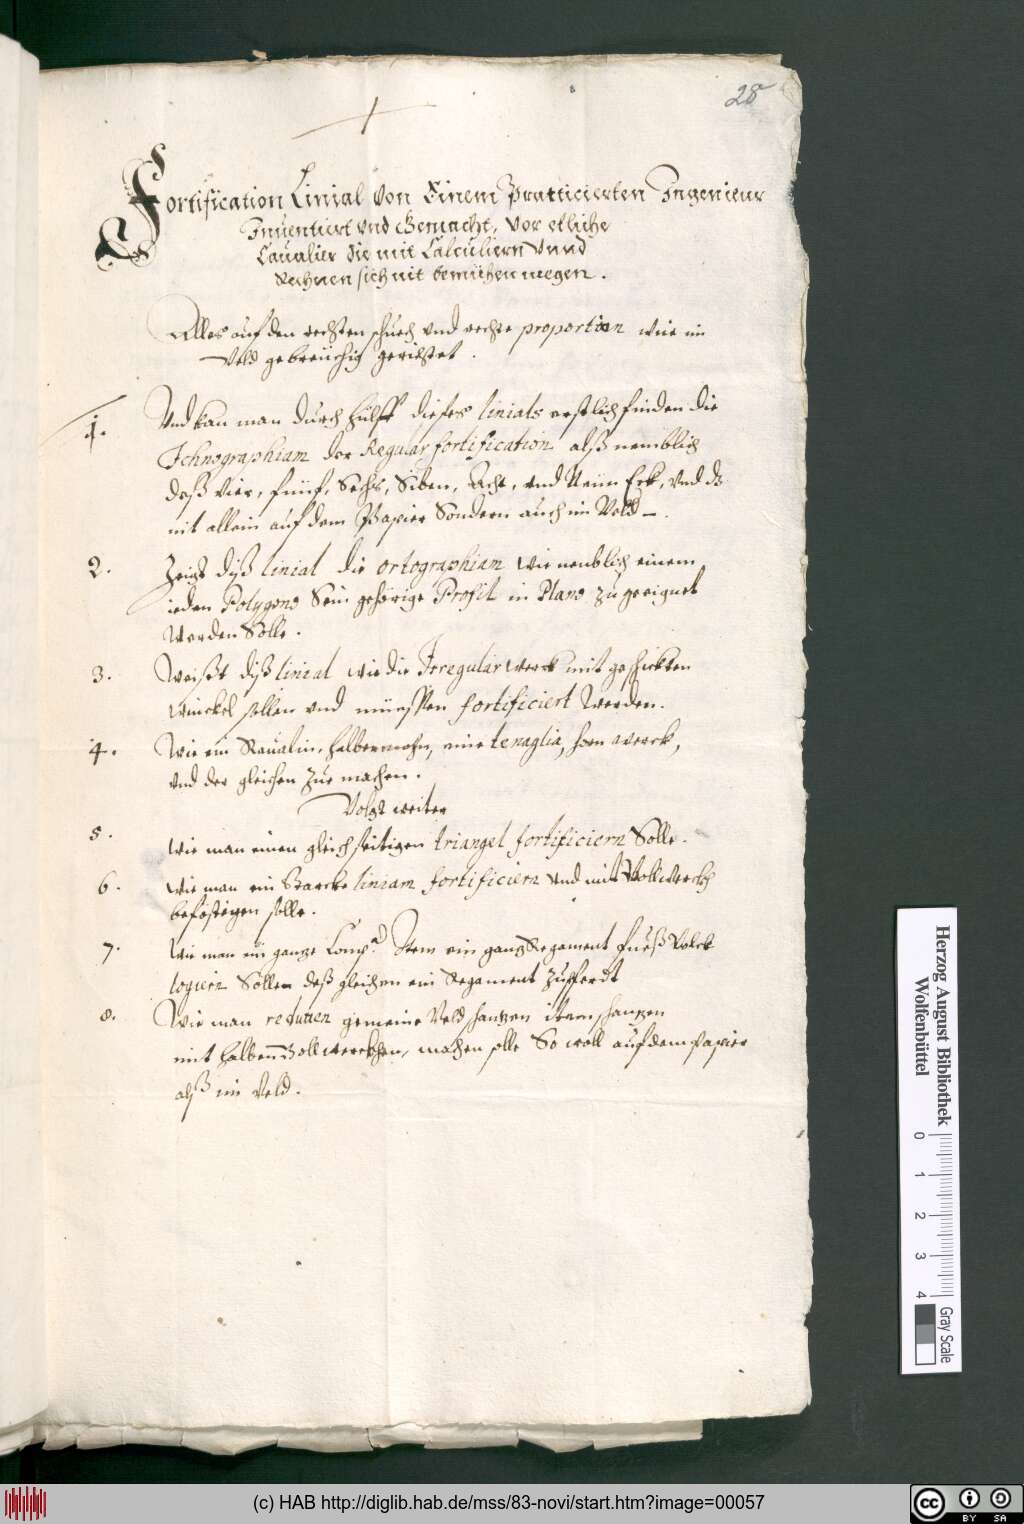 28
Fortification Linial von Einem Practicierten Ingenieur
Inuentiert vnd Gemacht, vor etliche
Caualier die mit Calculiern Vnnd
Rechnen sich nit bemühen megen.
Alles auf den rechten schuech vnd rechte proportion wie im
Veld gebreüchig gerichtet.
1. Vnd kan man durch hülff dieses linials erstlich finden die
Ichnographiam der Regular fortification alß nemblich
daß Vier, fünf, Sechs, Siben, Acht, vnd Neün Eck, vnd dz
nit allein auf dem Papier Sondern auch im Veld.
2. Zeigt diß linial die ortographiam wie nemblich einem
ieden Polygono Sein gehörige Profil in Plano zu geeignet
Werden Solle.
3. Weißt diß linial wie die Irregular werck mit geschickten
winckel sollen vnd müessen fortificiert Werden.
4. Wie ein Raualin, halbenmohn, eine tenaglia, horn werck,
vnd der gleichen Zue machen.
Volgt weiter
5. Wie man einen gleichseitigen triangel fortificiern Solle.
6. Wie man ein Starcke liniam fortificiern vnd mit Vollwerckh
befestigen solle.
7. Wie man ein gantze Comp. Item ein gantz Regament fueß Volck
logiern Sollen deß gleichen ein Regament zu Pferdt
8. Wie man reduten gemeine Veld schantzen item schantzen
mit halben Bollwerckhen, machen solle So woll auf dem Papier
alß im Veld.
Herzog August Bibliothek
Wolfenbüttel
0 1 2 3 4
Gray Scale
(c) HAB http://diglib.hab.de/mss/83-novi/start.htm?image=00057
cc BY SA